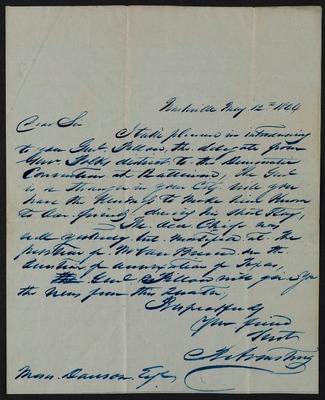 Nashville May 12th 1844
Dear Sir
I take pleasure in introducing
to you Genl. Pillow, the delegate from
Gov. Polks district to the Democratic
Convention at Baltimore, The Genl
is a stranger in your City will you
have the kindness to make him known
to our friends, during his short stay,
The old Chief was
well yesterday but mortified at the
position of Mr Van Buren on the
question of annexation of Texas,
Genl. Pillow will give you
the news from this quarter,
Respectfully
Your friend
Servt
Armstrong
Moses Dawson Esqr